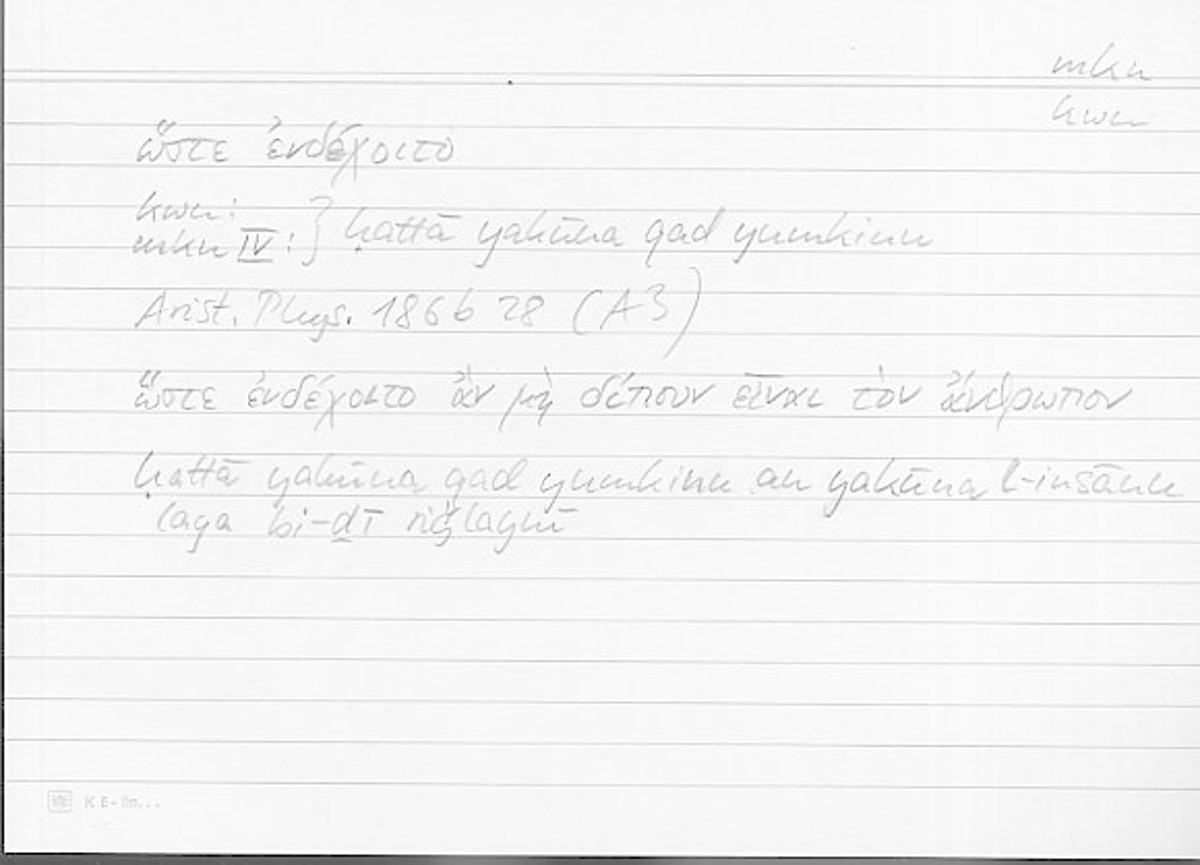 mkn
kwn
ὥστε ἐνδέχοιτο
kwn:
mkn IV: } ḥattā yakūna qad yumkinu
Arist. Phys. 186b 28 (A3)
ὥστε ἐνδέχοιτο ἂν μὴ δίπουν εἶναι τὸν ἄνθρωπον
ḥattā yakūna qad yumkinu an yakūna l-insānu
laysa bi-ḏī riǧlayni